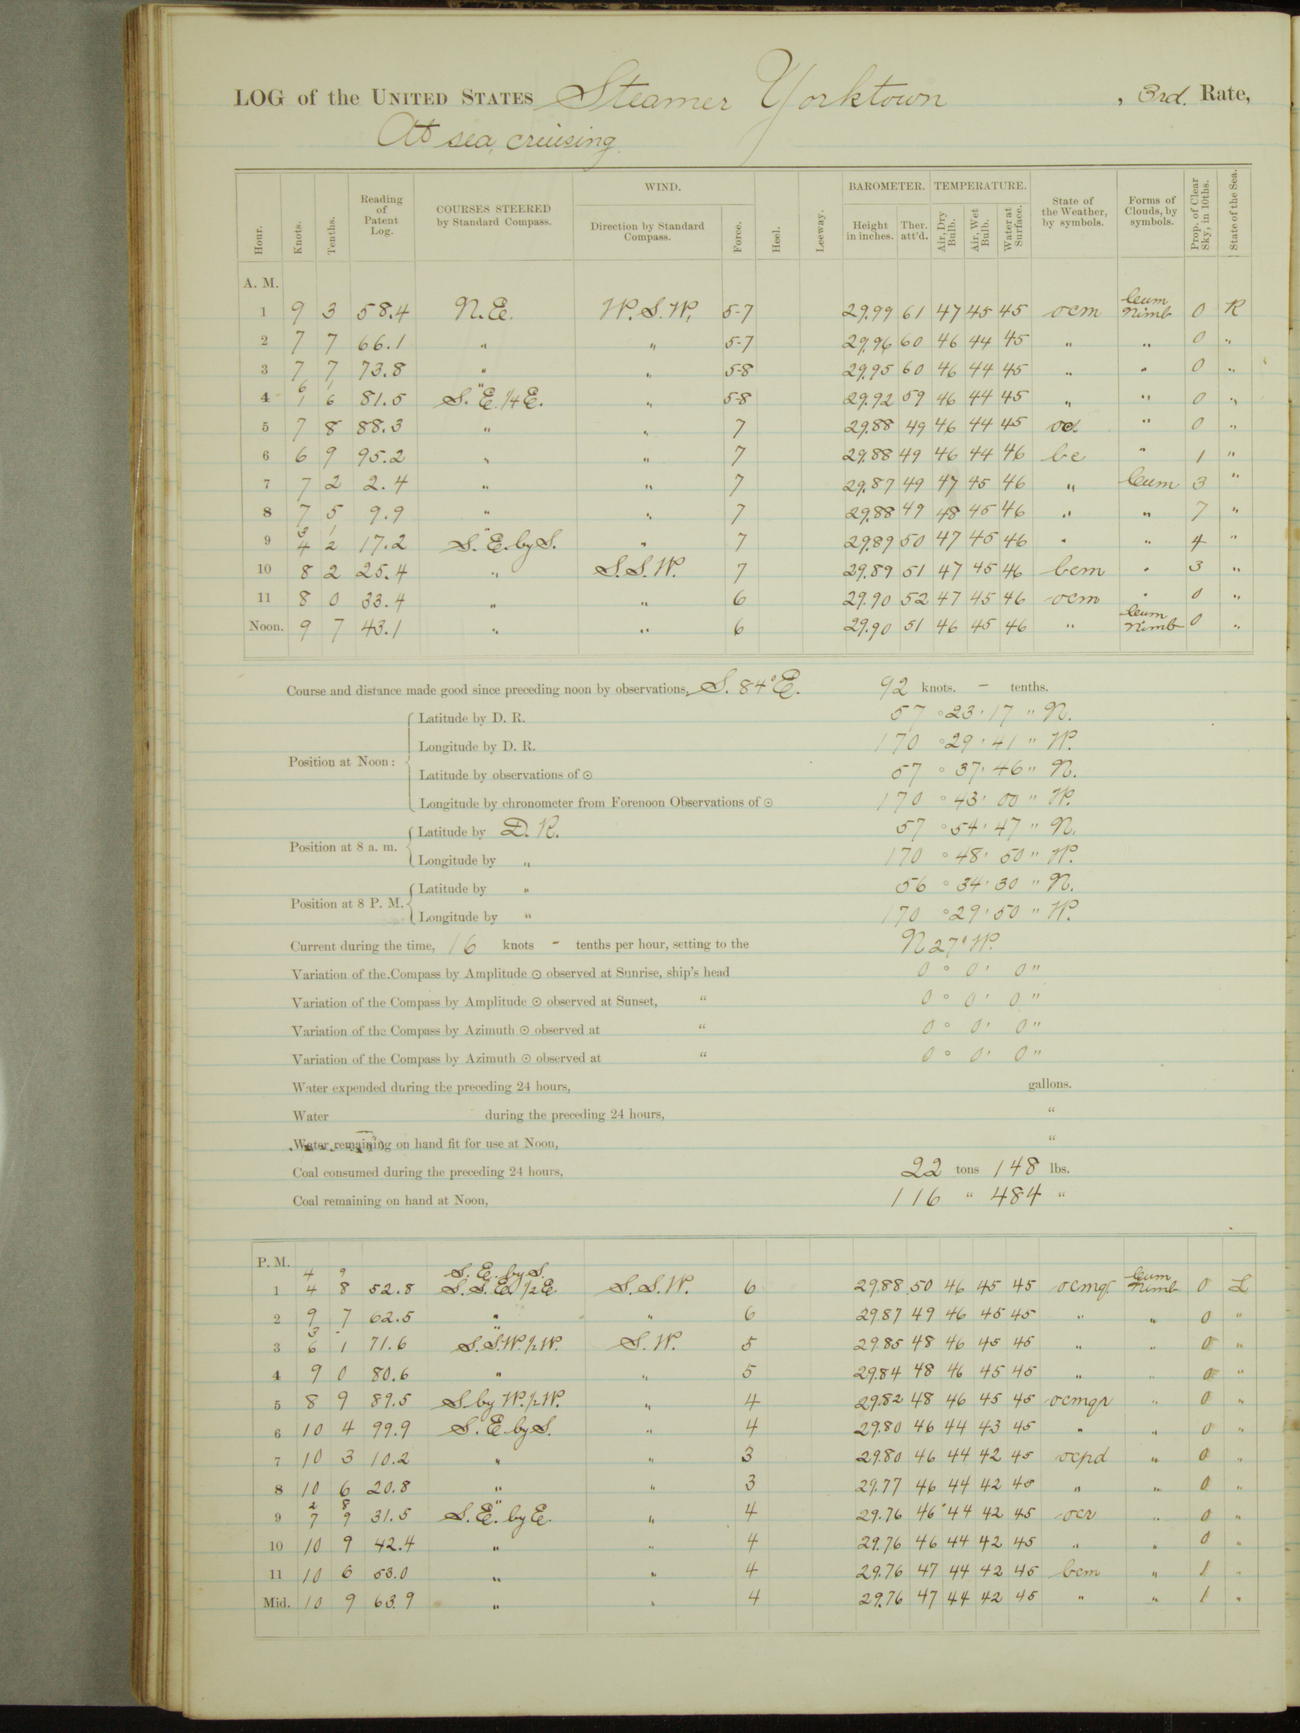 LOG of the UNITED STATES Steamer Yorktown, 3rd. Rate,
At sea, cruising.
Hour. Knots. Tenths. Reading of Patent Log. COURSES STEERED by Standard Compass. WIND. Direction by Standard Compass. Force. Heel. Leeway. BAROMETER. Height in inches. Ther. att'd. TEMPERATURE. Air, Dry Bulb. Air, Wet Bulb. Water at Surface. State of the Weather, by symbols. Forms of Clouds, by symbols. Prop. of Clear Sky, in 10ths. State of the Sea.
A. M.
1 9 3 58.4 N.E. W.S.W. 5-7 29.99 61 47 45 45 ocm Cum Nimb 0 R
2 7 7 66.1 " " 5-7 29.96 60 46 44 45 " " 0 "
3 7 7 73.8 " " 5-8 29.95 60 46 44 45 " " 0 "
6 1 "
4 1 6 81.5 S.E. 1/4 E. " 5-8 29.92 59 46 44 45 " " 0 "
5 7 8 88.3 " " 7 29.88 49 46 44 45 " 0 "
6 6 9 95.2 " " 7 29.88 49 46 44 46 bc " 1 "
7 7 2 2.4 " " 7 29.87 49 47 45 46 " Cum 3 "
8 7 5 9.9 " " 7 29.88 49 48 45 46 " " 7 "
3 1 "
9 4 2 17.2 S.E. by S. " 7 29.89 50 47 45 46 " " 4 "
10 8 2 25.4 " S.S.W. 7 29.89 51 47 45 46 bcm " 3 "
11 8 0 33.4 " " 6 29.90 52 47 45 46 ocm " 0 "
Noon. 9 7 43.1 " " 6 29.90 51 46 45 46 " Cum Nimb 0 "
Course and distance made good since preceding noon by observations, S. 84° E. 92 knots. – tenths.
Position at Noon: Latitude by D. R. 57 ° 23 ' 17 " N.
Longitude by D. R. 170 ° 29 ' 41 " W.
Latitude by observations of ☉ 57 ° 37 ' 46 " N.
Longitude by chronometer from Forenoon Observations of ☉ 170 ° 43 ' 00 " W.
Position at 8 a. m. Latitude by D. R. 57 ° 54 ' 47 " N.
Longitude by " 170 ° 48 ' 50 " W.
Position at 8 P. M. Latitude by " 56 ° 34 ' 30 " N.
Longitude by " 170 ° 29 ' 50 " W.
Current during the time, 16 knots – tenths per hour, setting to the N 27° W.
Variation of the Compass by Amplitude ☉ observed at Sunrise, ship's head 0 ° 0 ' 0 "
Variation of the Compass by Amplitude ☉ observed at Sunset, " 0 ° 0 ' 0 "
Variation of the Compass by Azimuth ☉ observed at " 0 ° 0 ' 0 "
Variation of the Compass by Azimuth ☉ observed at " 0 ° 0 ' 0 "
Water expended during the preceding 24 hours, gallons.
Water during the preceding 24 hours, "
Water remaining on hand fit for use at Noon, "
Coal consumed during the preceding 24 hours, 22 tons 148 lbs.
Coal remaining on hand at Noon, 116 " 484 "
P. M.
4 9 S.E. by S.
1 4 8 52.8 S.S.E. 1/2 E. S.S.W. 6 29.88 50 46 45 45 ocmq Cum Nimb 0 L
2 9 7 62.5 " " 6 29.87 49 46 45 45 " " 0 "
3 - "
3 6 1 71.6 S.S.W. 1/2 W. S.W. 5 29.85 48 46 45 45 " " 0 "
4 9 0 80.6 " " 5 29.84 48 46 45 45 " " 0 "
5 8 9 89.5 S. by W. 1/2 W. " 4 29.82 48 46 45 45 ocmqr " 0 "
6 10 4 99.9 S.E. by S. " 4 29.80 46 44 43 45 " " 0 "
7 10 3 10.2 " " 3 29.80 46 44 42 45 ocpd " 0 "
8 10 6 20.8 " " 3 29.77 46 44 42 45 " " 0 "
2 8 "
9 7 9 31.5 S.E. by E. " 4 29.76 46 44 42 45 ocr " 0 "
10 10 9 42.4 " " 4 29.76 46 44 42 45 " " 0 "
11 10 6 53.0 " " 4 29.76 47 44 42 45 bcm " 1 "
Mid. 10 9 63.9 " " 4 29.76 47 44 42 45 " " 1 "